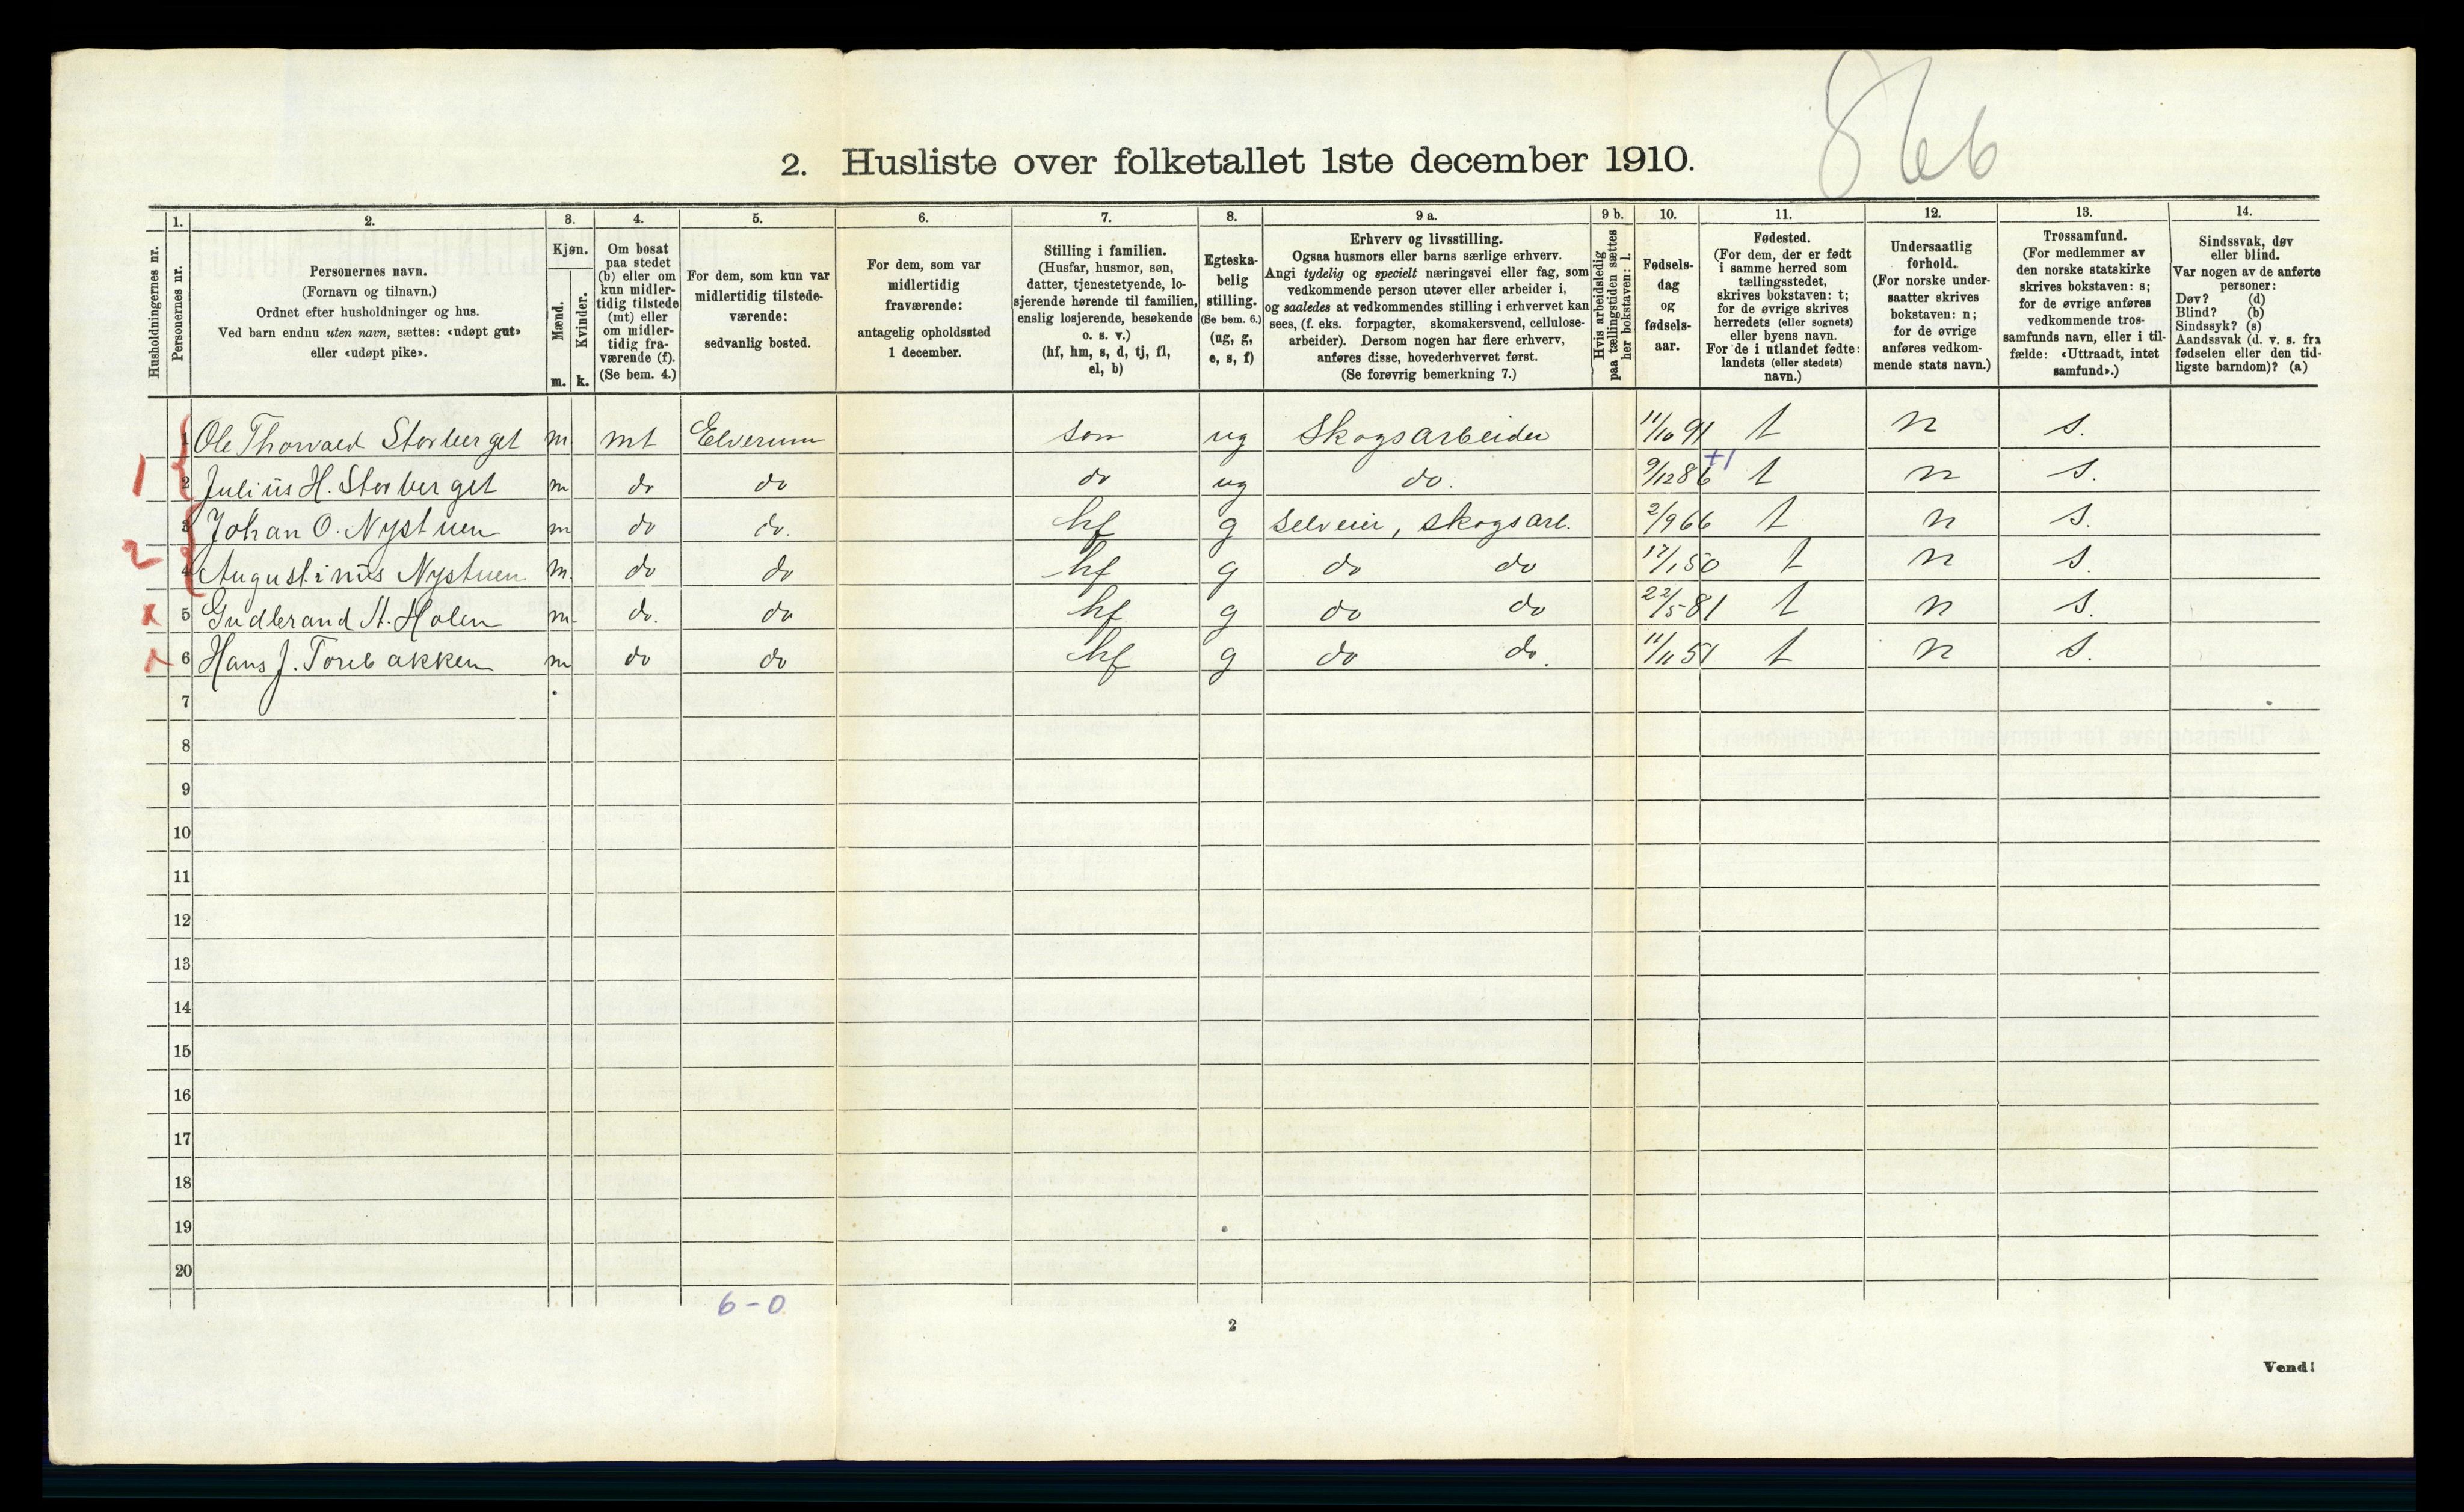 866
2. Husliste over folketallet 1ste december 1910.
Husholdningernes nr.
1. Personernes nr.
2. Personernes navn.
(Fornavn og tilnavn.)
Ordnet efter husholdninger og hus.
Ved barn endnu uten navn, sættes: «udøpt gut»
eller «udøpt pike».
3. Kjøn.
Mænd. m.
Kvinder. k.
4. Om bosat
paa stedet
(b) eller om
kun midler-
tidig tilstede
(mt) eller
om midler-
tidig fra-
værende (f).
(Se bem. 4.)
5. For dem, som kun var
midlertidig tilstede-
værende:
sedvanlig bosted.
6. For dem, som var
midlertidig
fraværende:
antagelig opholdssted
1 december.
7. Stilling i familien.
(Husfar, husmor, søn,
datter, tjenestetyende, lo-
sjerende hørende til familien,
enslig losjerende, besøkende
o. s. v.)
(hf, hm, s, d, tj, fl,
el, b)
8. Egteska-
belig
stilling.
(Se bem. 6.)
(ug, g,
e, s, f)
9 a. Erhverv og livsstilling.
Ogsaa husmors eller barns særlige erhverv.
Angi tydelig og specielt næringsvei eller fag, som
vedkommende person utøver eller arbeider i,
og saaledes at vedkommendes stilling i erhvervet kan
sees, (f. eks. forpagter, skomakersvend, cellulose-
arbeider). Dersom nogen har flere erhverv,
anføres disse, hovederhvervet først.
(Se forøvrig bemerkning 7.)
9 b. Hvis arbeidsledig
paa tællingstiden sættes
her bokstaven: l.
10. Fødsels-
dag
og
fødsels-
aar.
11. Fødested.
(For dem, der er født
i samme herred som
tællingsstedet,
skrives bokstaven: t;
for de øvrige skrives
herredets (eller sognets)
eller byens navn.
For de i utlandet fødte:
landets (eller stedets)
navn.)
12. Undersaatlig
forhold.
(For norske under-
saatter skrives
bokstaven: n;
for de øvrige
anføres vedkom-
mende stats navn.)
13. Trossamfund.
(For medlemmer av
den norske statskirke
skrives bokstaven: s;
for de øvrige anføres
vedkommende tros-
samfunds navn, eller i til-
fælde: «Uttraadt, intet
samfund».)
14. Sindssvak, døv
eller blind.
Var nogen av de anførte
personer:
Døv? (d)
Blind? (b)
Sindssyk? (s)
Aandssvak (d. v. s. fra
fødselen eller den tid-
ligste barndom)? (a)
1 Ole Thorvald Storberget m. mt Elverum søn ug Skogsarbeider 11/10 91 t n s.
1 2 Julius H. Storberget m do do do ug do. 9/12 86 +1 t n s.
3 Johan O. Nystuen m do do. hf g Selveier, skogsarb. 2/9 66 t n s.
2 4 Augustinus Nystuen. m. do do hf g do do 17/1 50 t n s.
x 5 Gudbrand A. Holen m. do. do hf g do do 22/5 81 t n s.
x 6 Hans J. Torebakken m do do hf g do do. 11/11 51 t n s.
7
8
9
10
11
12
13
14
15
16
17
18
19
20
6-0
2
Vend!